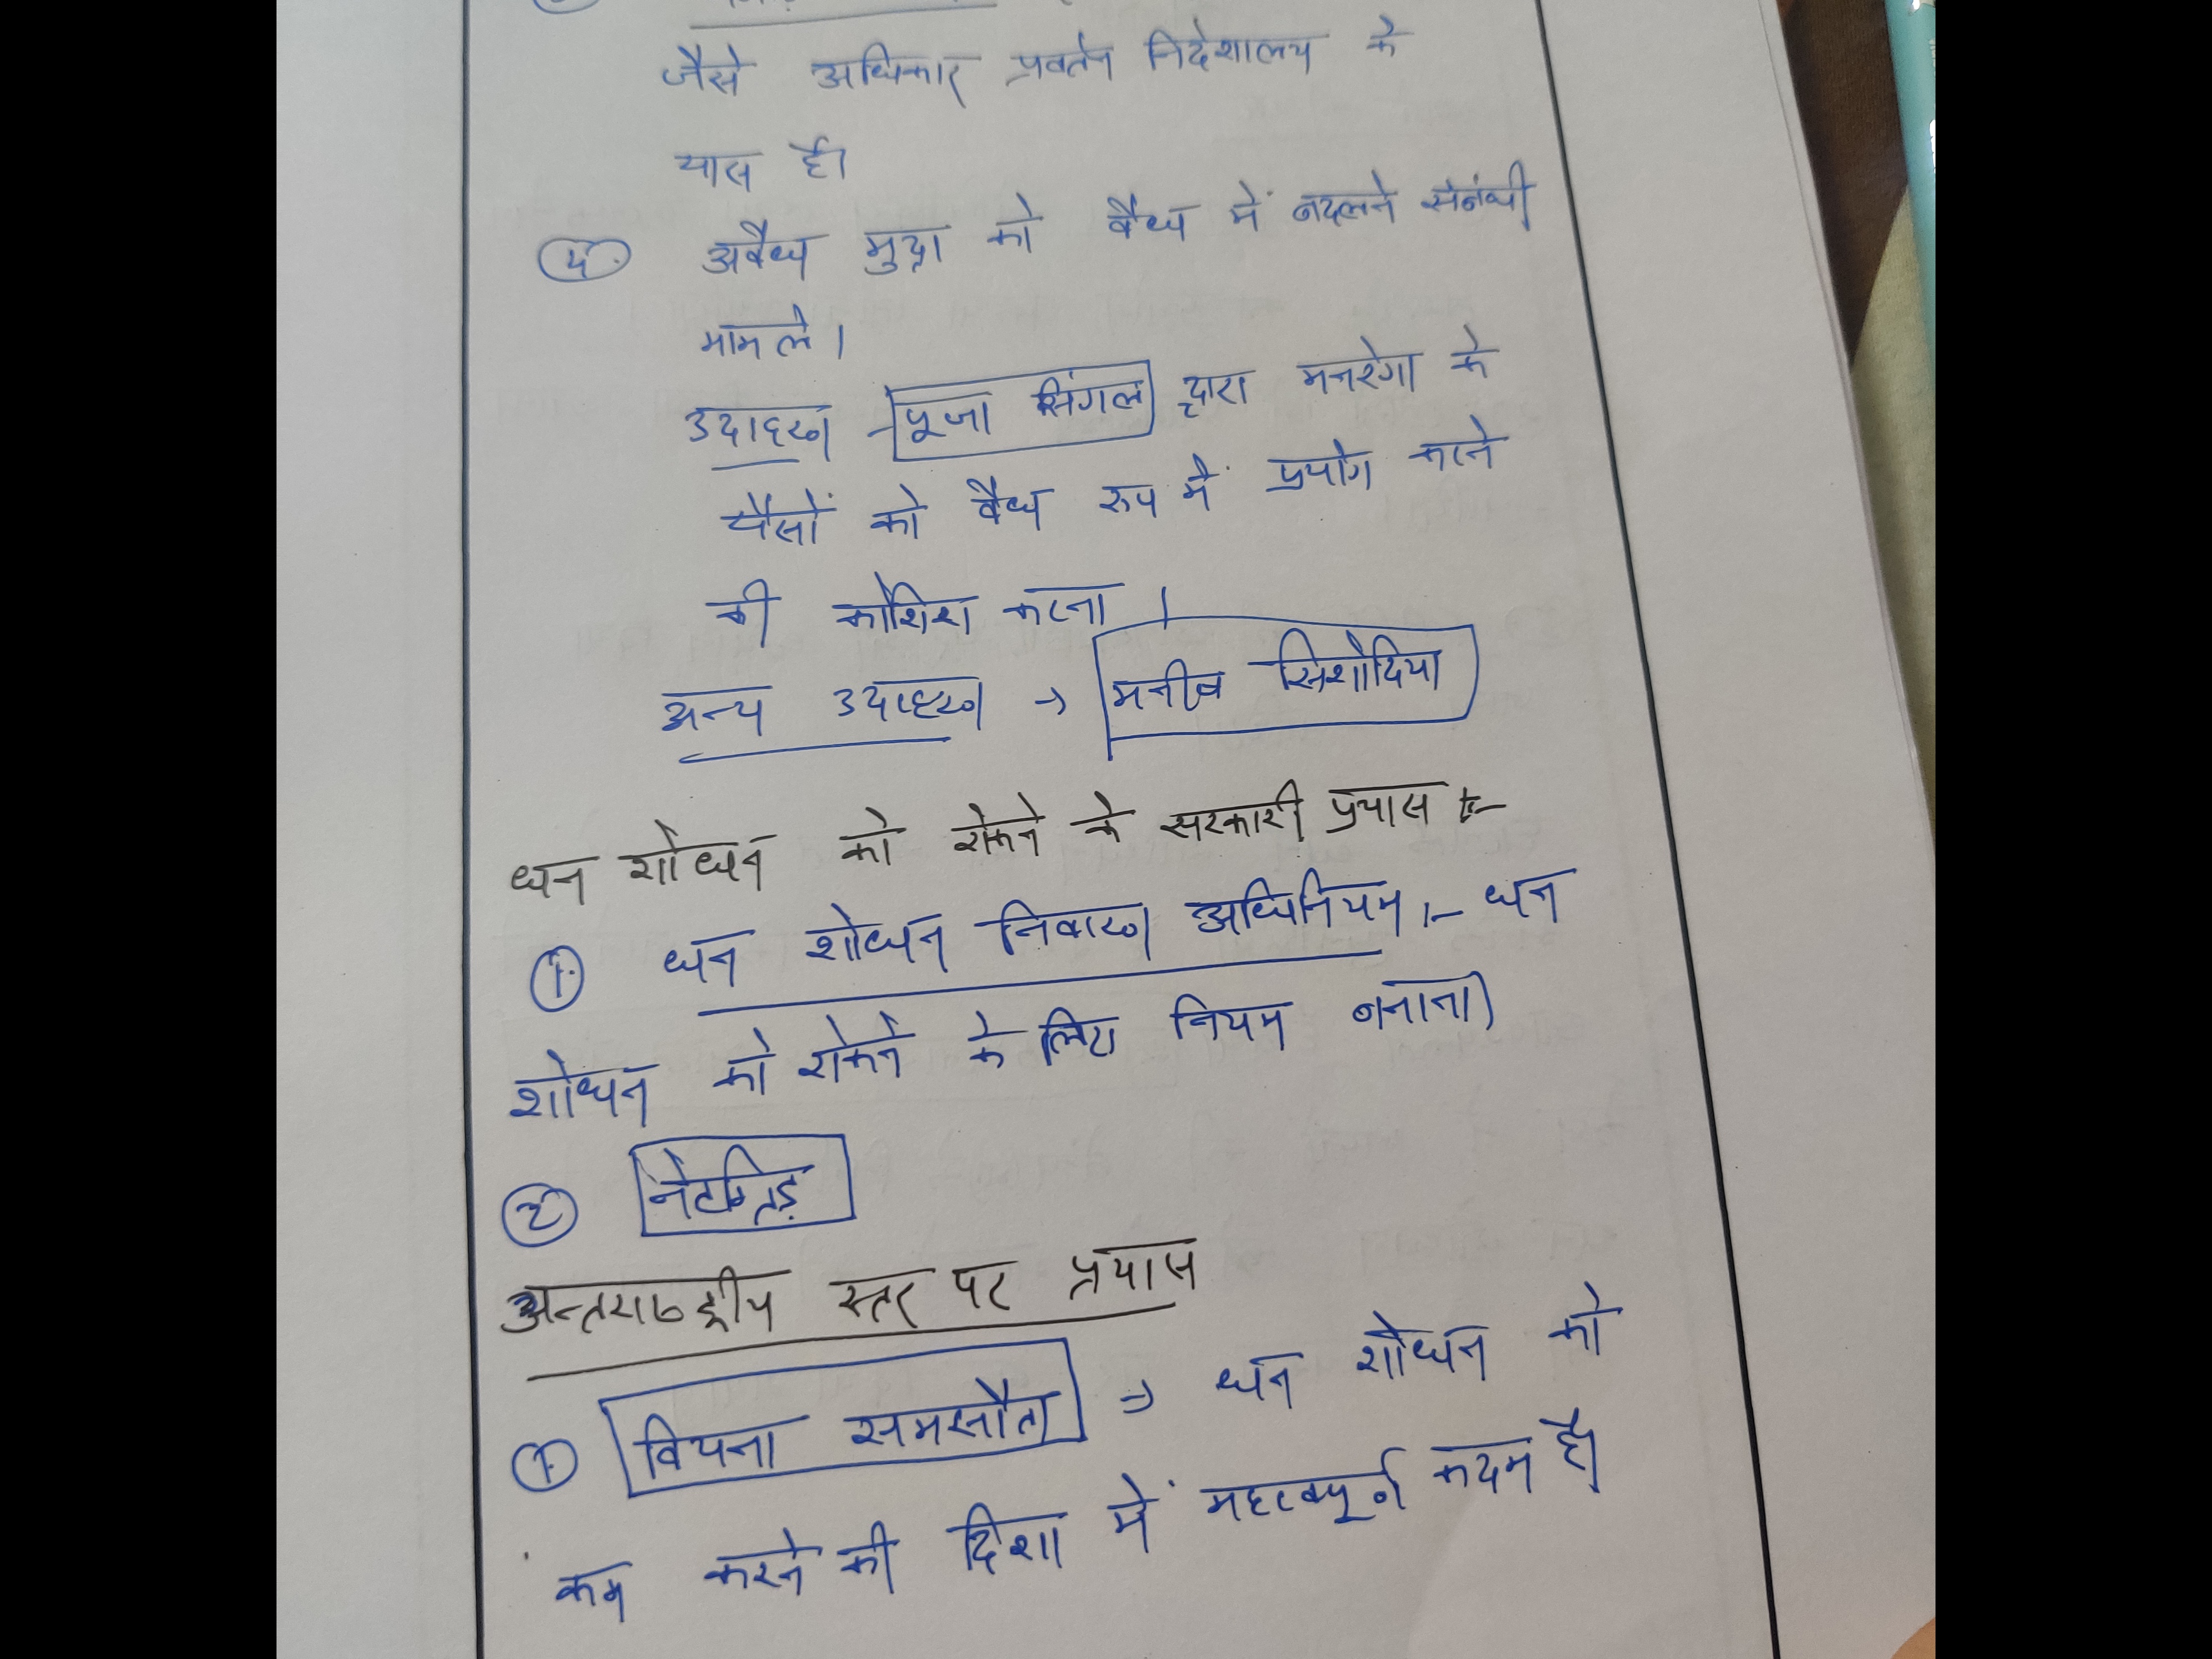 जैसे अधिकार प्रवर्तन निदेशालय के
पास है।
4. अवैध मुद्रा को वैध में बदलने संबंधी
मामले।
उदाहरण - पूजा सिंगल द्वारा मनरेगा के
पैसों को वैध रूप में प्रयोग करने
की कोशिश करना।
अन्य उदाहरण → मनीष सिशोदिया
धन शोधन को रोकने के सरकारी प्रयास :-
1. धन शोधन निवारण अधिनियम :- धन
शोधन को रोकने के लिए नियम बनाना)
2 नेटग्रिड़
अन्तराष्ट्रीय स्तर पर प्रयास
1. वियना समझौता ⇒ धन शोधन को
कम करने की दिशा में महत्वपूर्ण कदम है।